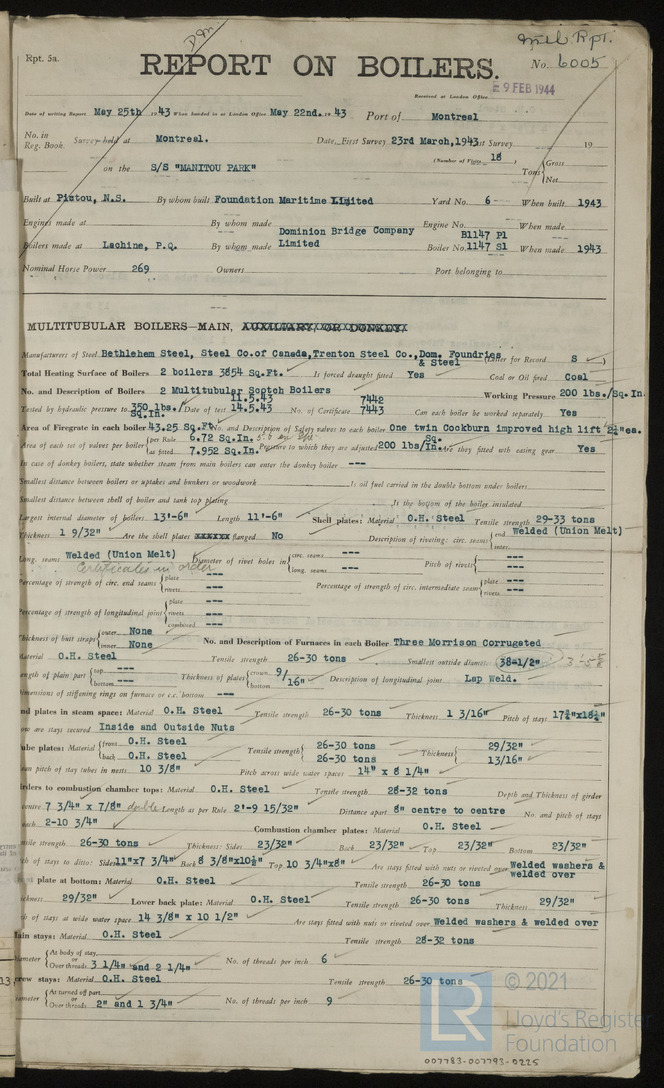 D.M.
Mtl Rpt.
Rpt. 5a.
REPORT ON BOILERS.
No. 6005
Received at London Office
9 FEB 1944
Date of writing Report May 25th 1943 When handed in at London Office May 22nd. 1943 Port of Montreal
No. in Reg. Book. Survey held at Montreal. Date, First Survey 23rd March, 1943 Last Survey 19
(Number of Visits 18 )
on the S/S "MANITOU PARK" Tons { Gross Net
Built at Pictou, N.S. By whom built Foundation Maritime Limited Yard No. 6 When built 1943
Engines made at By whom made Engine No. When made
Boilers made at Lachine, P.Q. By whom made Dominion Bridge Company Limited Boiler No. B1147 P1 1147 S1 When made 1943
Nominal Horse Power 269 Owners Port belonging to
MULTITUBULAR BOILERS—MAIN, AUXILIARY OR DONKEY
Manufacturers of Steel Bethlehem Steel, Steel Co.of Canada,Trenton Steel Co.,Dom. Foundries & Steel (Letter for Record S )
Total Heating Surface of Boilers 2 boilers 3854 Sq.Ft. Is forced draught fitted Yes Coal or Oil fired Coal
No. and Description of Boilers 2 Multitubular Scotch Boilers Working Pressure 200 lbs./Sq.In.
Tested by hydraulic pressure to 350 lbs./Sq.In. Date of test 11.5.43 14.5.43 No. of Certificate 7442 7443 Can each boiler be worked separately Yes
Area of Firegrate in each boiler 43.25 Sq.Ft. No. and Description of Safety valves to each boiler One twin Cockburn improved high lift 2½"ea.
Area of each set of valves per boiler { per Rule 6.72 Sq.In. as fitted 7.952 Sq.In. Pressure to which they are adjusted 200 lbs/Sq.In. Are they fitted with easing gear Yes
In case of donkey boilers, state whether steam from main boilers can enter the donkey boiler ---
Smallest distance between boilers or uptakes and bunkers or woodwork Is oil fuel carried in the double bottom under boilers
Smallest distance between shell of boiler and tank top plating Is the bottom of the boiler insulated
Largest internal diameter of boilers 13'-6" Length 11'-6" Shell plates: Material O.H. Steel Tensile strength 29-33 tons
Thickness 1 9/32" Are the shell plates flanged No Description of riveting: circ. seams { end Welded (Union Melt) inter.
Long. seams Welded (Union Melt) Diameter of rivet holes in { circ. seams --- long. seams --- Pitch of rivets { --- ---
Certificates in order
Percentage of strength of circ. end seams { plate --- rivets --- Percentage of strength of circ. intermediate seam { plate --- rivets ---
Percentage of strength of longitudinal joint { plate --- rivets --- combined ---
Thickness of butt straps { outer None inner None No. and Description of Furnaces in each Boiler Three Morrison Corrugated
Material O.H. Steel Tensile strength 26-30 tons Smallest outside diameter 38-1/2"
Length of plain part { top --- bottom --- Thickness of plates { crown bottom 9/16" Description of longitudinal joint Lap Weld.
Dimensions of stiffening rings on furnace or c.c. bottom ---
End plates in steam space: Material O.H. Steel Tensile strength 26-30 tons Thickness 1 3/16" Pitch of stays 17¾"x18½"
How are stays secured Inside and Outside Nuts
Tube plates: Material { front O.H. Steel back O.H. Steel Tensile strength { 26-30 tons 26-30 tons Thickness { 29/32" 13/16"
Mean pitch of stay tubes in nests 10 3/8" Pitch across wide water spaces 14" x 8 1/4"
Girders to combustion chamber tops: Material O.H. Steel Tensile strength 28-32 tons Depth and Thickness of girder
centre 7 3/4" x 7/8" double Length as per Rule 2'-9 15/32" Distance apart 8" centre to centre No. and pitch of stays
each 2-10 3/4" Combustion chamber plates: Material O.H. Steel
Tensile strength 26-30 tons Thickness: Sides 23/32" Back 23/32" Top 23/32" Bottom 23/32"
Pitch of stays to ditto: Sides 11"x7 3/4" Back 8 3/8"x10½" Top 10 3/4"x8" Are stays fitted with nuts or riveted over Welded washers & welded over
plate at bottom: Material O.H. Steel Tensile strength 26-30 tons
Thickness 29/32" Lower back plate: Material O.H. Steel Tensile strength 26-30 tons Thickness 29/32"
Pitch of stays at wide water space 14 3/8" x 10 1/2" Are stays fitted with nuts or riveted over Welded washers & welded over
Main stays: Material O.H. Steel Tensile strength 28-32 tons
Diameter { At body of stay or Over threads 3 1/4" and 2 1/4" No. of threads per inch 6
Screw stays: Material O.H. Steel Tensile strength 26-30 tons
Diameter { At turned off part or Over threads 2" and 1 3/4" No. of threads per inch 9
LR
© 2021
Lloyd's Register
Foundation
007783-007793-0225